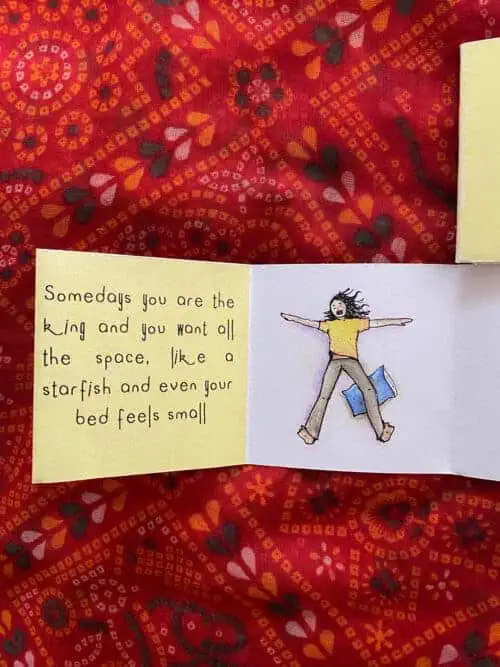 Somedays you are the
king and you want all
the space, like a
starfish and even your
bed feels small